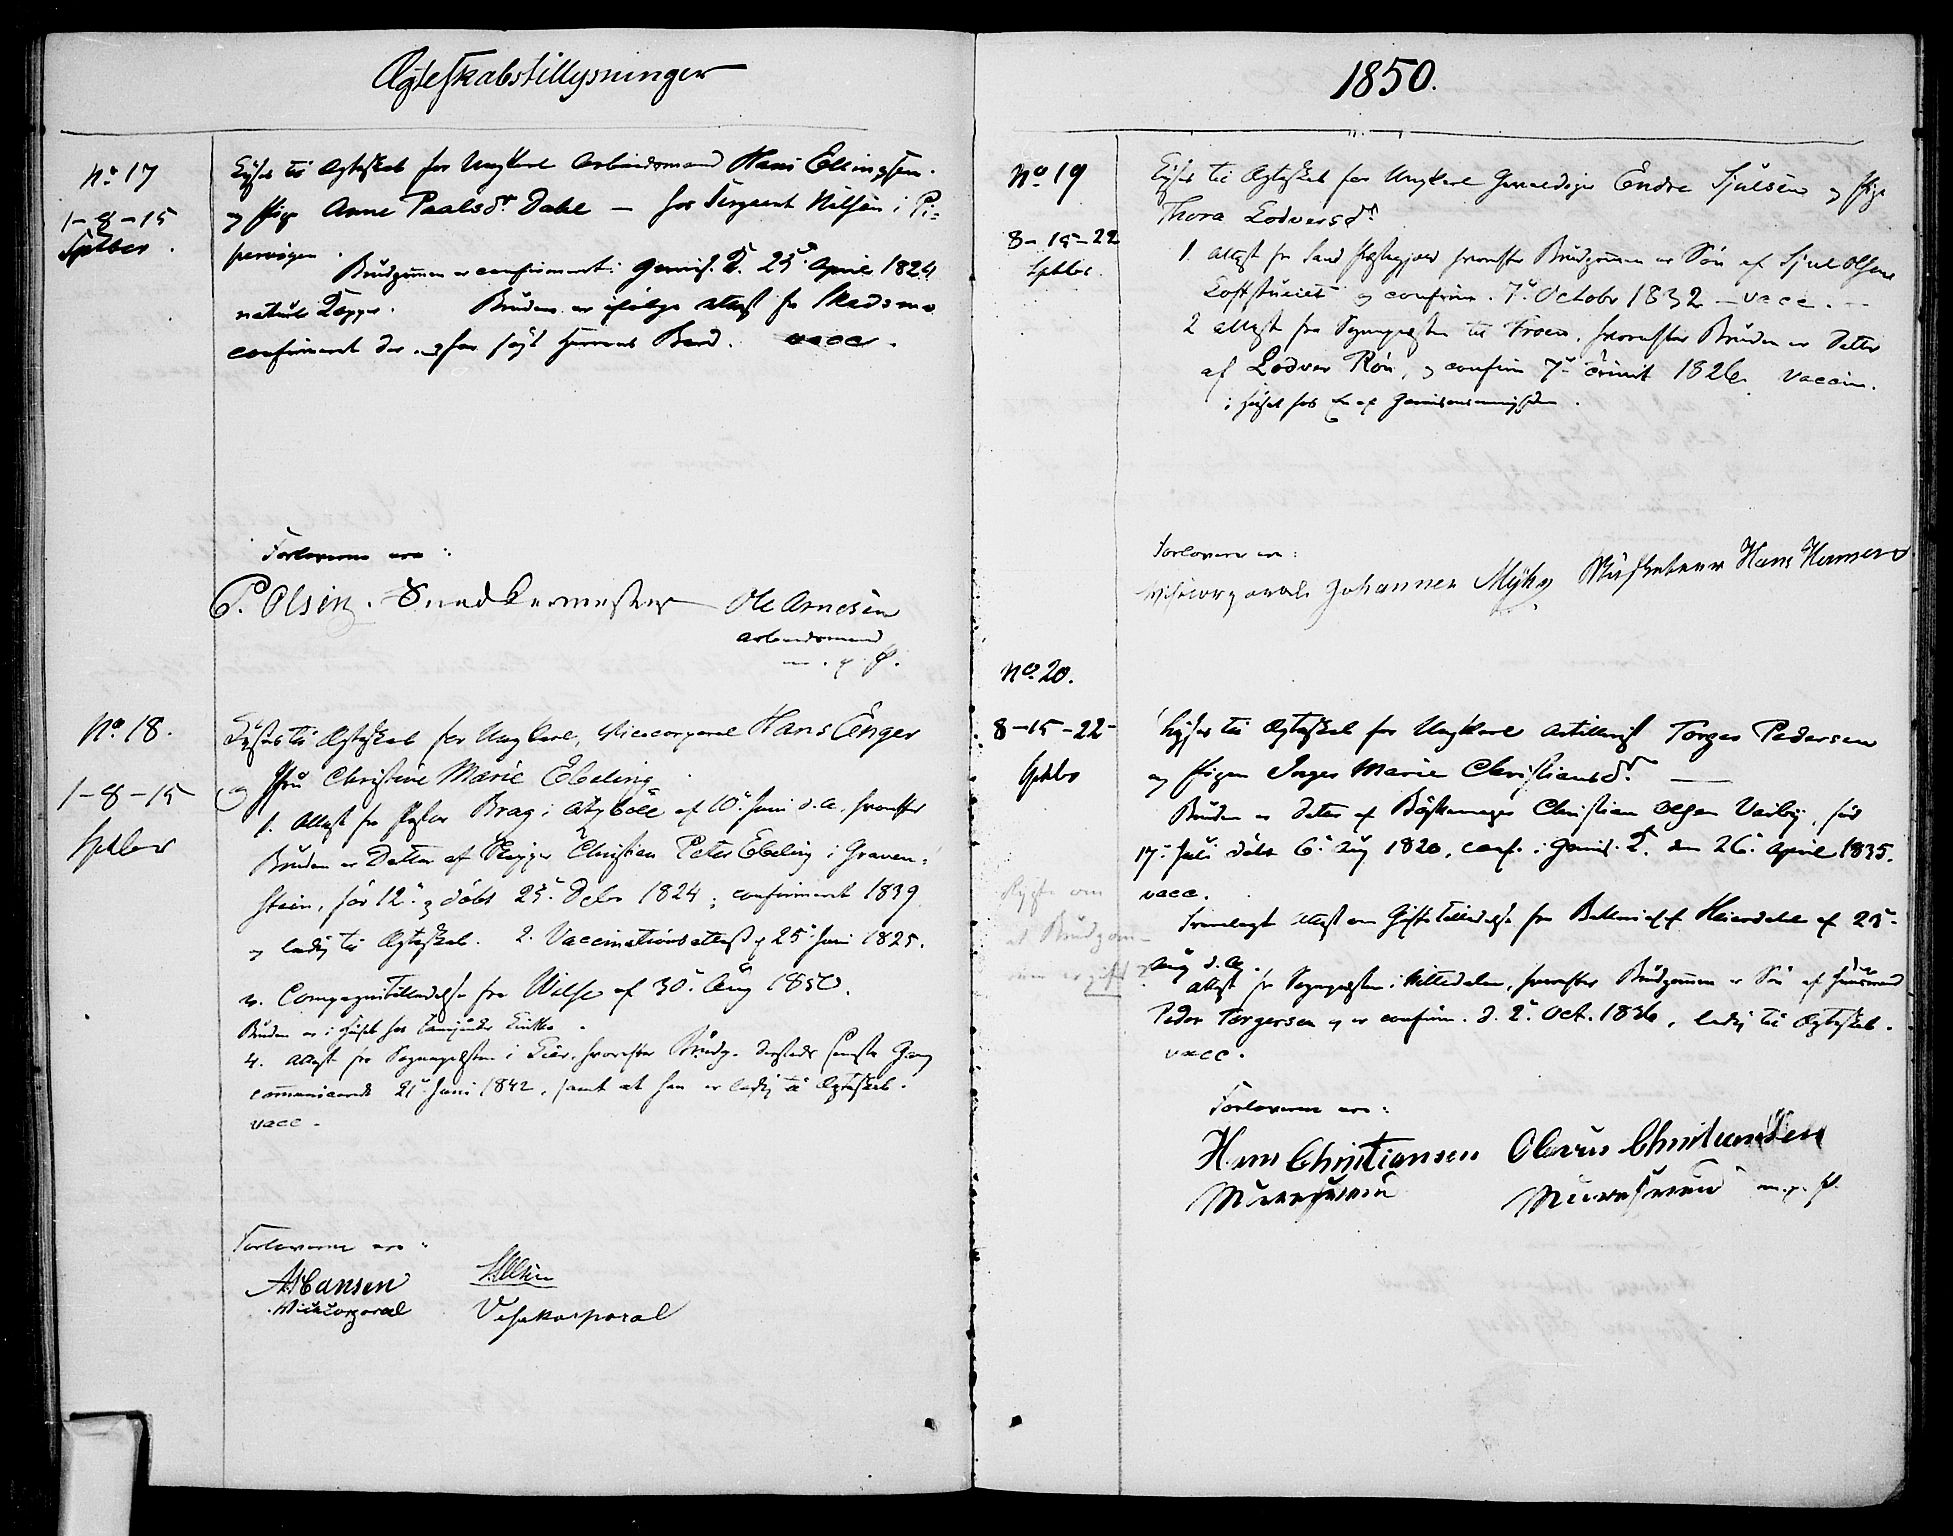 Ægteskabstillysninger
No 17
1-8-15
Septber.
Lyses til Ægteskab for Ungkarl Arbeidsmand Hans Ellingsen
og Pige Anne Paalsdr Dahl — hos Sergeant Nilsen i Pi-
pervigen.
Brudgommen er confirmeret i Garnis. K. 25 April 1824
Bruden er ifølge Attest fra
confirmeret der vacc.
Forloverne ere:
P. Olsen. Snedkermester Ole Arnesen
Arbeidsmand
m. p. P.
No 18.
1-8-15
Septber
Lyses til Ægteskab for Ungkarl, Vicecorporal Hans Enger
og Christine Marie Ebeling
1. Attest fra Pastor Brag i Atzbøll af 10 Juni d. A. hvorefter
Bruden er Datter af Skipper Christian Peter Ebeling i Graven-
stein, før 12 og døbt 25 Debr 1824; confirmeret 1839
og ledig til Ægteskab. 2. Vaccinationsattest af 25 Juni 1825.
3. Compagnitilladelse fra Wilse af 30 Aug 1850.
Bruden er i Huset hos
4. Attest fra Sognepresten i hvorefter Brudg. dersteds sidste Gang
communicerede 21 Juni 1842, samt at han er ledig til Ægteskab.
vacc.
Forloverne ere:
A Hansen
Vicecorporal Visekorporal
1850.
No 19
8-15-22
Septbr.
Lyses til Ægteskab for Ungkarl Gevaldiger Endre Sjulsen og Pige
Thora Lodversdr
1. Attest fra Land Præstegjeld hvorefter Brudgommen er Søn af Sjul Olsen
og confirm. 7 Octobr 1832 - vacc.
2 Attest fra Sognepresten til Froen, hvorefter Bruden er Datter
af Lodver Røn, og confirm 7 trinit 1826 vaccin.
i Huset hos en af Garnisonsmenigheden.
Forlovere ere:
Visecorporal Johannes Myhr Musketeer Hans Hansen
No. 20.
8-15-22-
Septbr
Lyses til Ægteskab for Ungkarl Artillerist Torger Pedersen
og Pigen Inger Marie Christiansdr.
Bruden er Datter af Bøssemager Christian Olsen Verby, før
17 Juli døbt 6 Aug 1820, conf. i Garnis. K. den 26 April 1835.
vacc.
Fremlagt Attest om Giftetilladelse fra Batteriechef Heierdahl af 25
Aug d. A.
Attest fra Sognepresten i Nittedalen, hvorefter Brudgommen er Søn af Huusmand
Peder Torgersen og er confirm. d. 2 Oct. 1836, ledig til Ægteskab.
vacc.
Rygte om
at Brudgom-
men er gift?
Forloverne ere:
Hans Christiansen Olavus Christiansen
Muursvend Muursvend m. p. P.